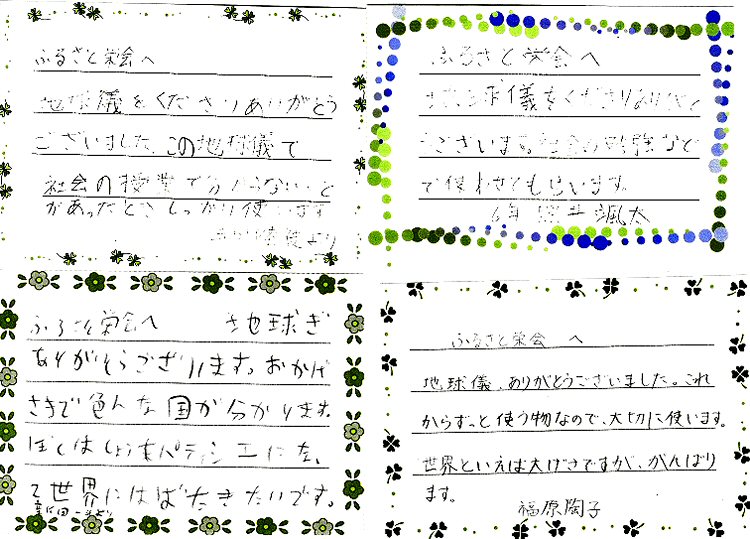 ふるさと栄会へ
地球儀をくださりありがとう
ございました。この地球儀で
社会の授業で分からないこと
があったときしっかり使います
より
ふるさと栄会へ
地球儀をくださりありがと
うございます。社会の勉強など
で使わさてもらいます。
6年 井颯太
ふるさと栄会へ 地球ぎ
ありがとうございます。おかげ
さまで色んな国が分かります。
ぼくはしょう来パティシエになっ
て世界にはばたきたいです。
より
ふるさと栄会 へ
地球儀、ありがとうございました。これ
からずっと使う物なので、大切に使います。
世界といえば大げさですが、がんばり
ます。
福原陶子